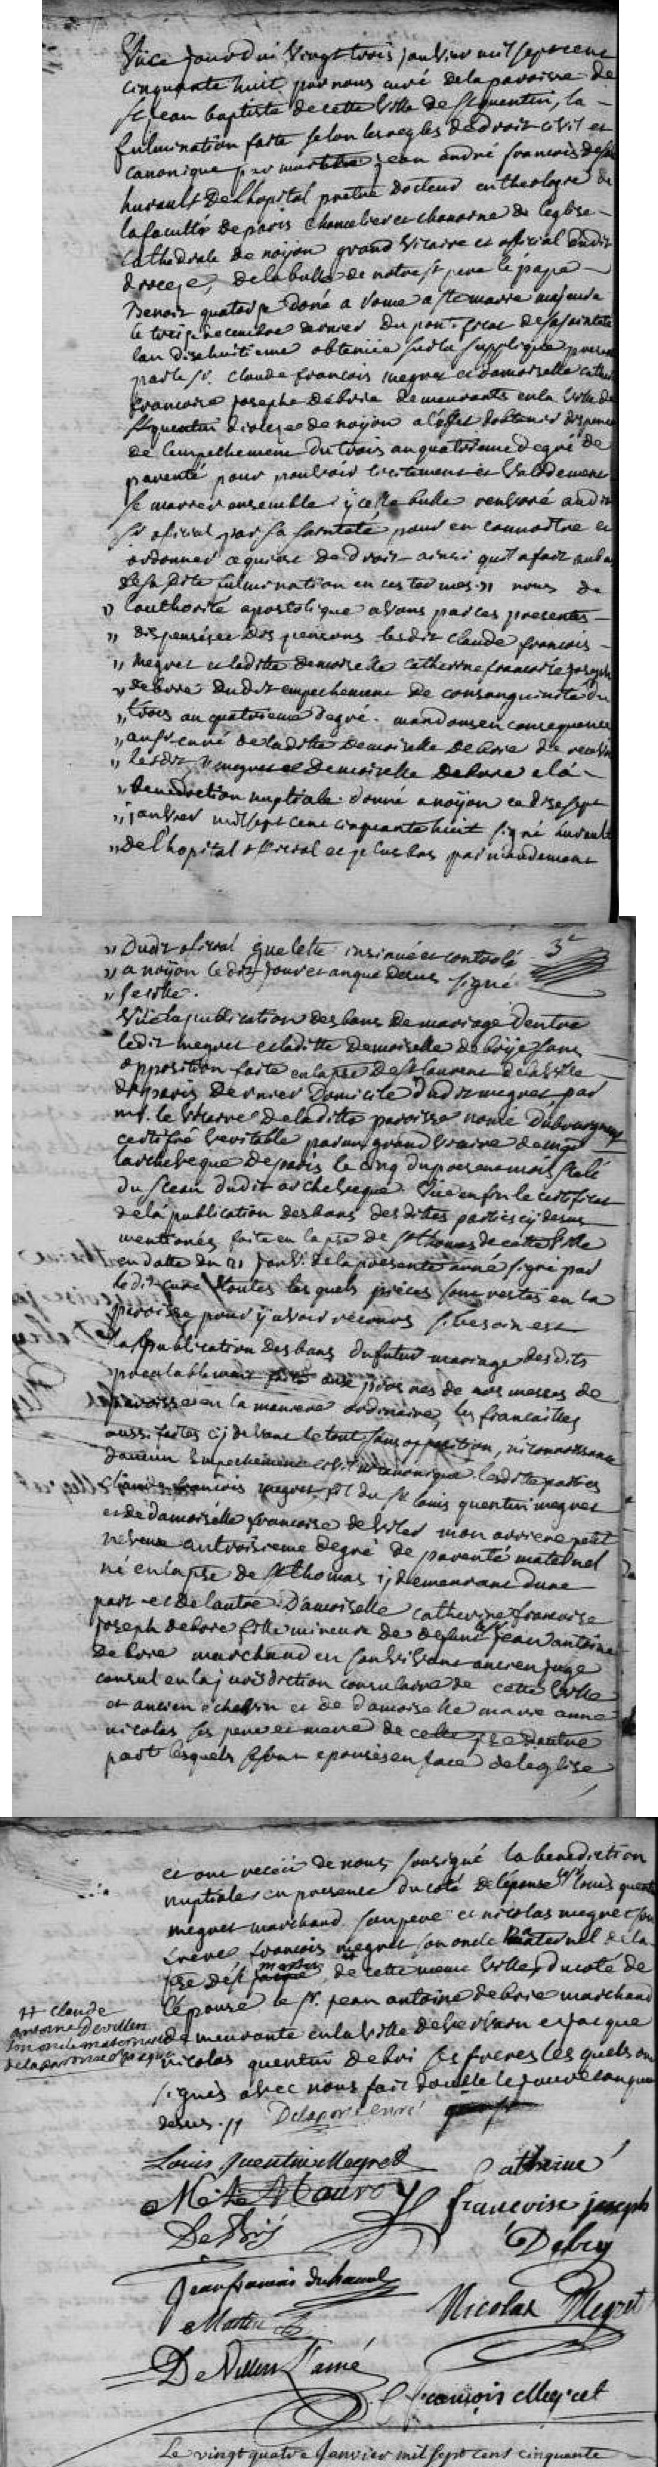 Vüe ce jourdui vingt trois janvier mil sept cent
cinquante huit par nous curé de la paroisse de
St jean baptiste de cette ville de St quentin, la
fulmination faite selon les regles de droit civil et
canonique par jean andré francois de
hurault de l'hopital pretre docteur en theologie de
la faculté de paris chancelier et chanoine de leglise
cathedrale de noyon grand vicaire et official dudit
diocese, de la bulle de notre st pere le pape
Benoit quatorze doné a rome a ste marie majeure
le treize decembre dernier du pontificat de sa sainteté
lan dix huitieme obtenüe sur la supplique
par le Sr. claude francois megret et damoiselle
francoise josephe debrie demeurants en la ville de
St quentin diocese de noyon a l'effet dobtenir dispence
de lempechement du trois au quatrieme degré de
parenté pour pouvoir licitement et validement
se marier ensemble, ycelle bulle renvoié audit
Sr oficial par sa sainteté pour en connoitre et
ordonner ce qui est de droit ainsi quil a fait
de sa dite fulmination en ces termes " nous de
" l'authorité apostolique avons par ces presentes
" dispensé et dispensons lesdits claude francois
" megret et ladite demoiselle catherine francoise joseph
" debrie dudit empechement de consanguinité du
" trois au quatrieme degré. mandons en consequence
" au Sr. curé de ladite demoiselle debrie de
" lesdits Sr megret et demoiselle debrie a la
" benediction nuptiale. donné a noyon ce dixsept
" janvier mil sept cent cinquante huit signé hurault
" de l'hopital oficial et plus bas par mandement
" dudit oficial insinué et controlé
" a noyon ledit jour et an que desus signé
"
Vüe la publication des bans de mariage dentre
ledit megret et laditte demoiselle de brÿe sans
opposition faite en la pse de st laurent de la ville
de paris dernier domicile dudit megret par
mr. le vicaire de laditte paroisse nomé
certifié veritable par un grand vicaire de mgr
larcheveque de paris le cinq du present mois scelé
du sceau dudit archeveque. Vüe enfin le certificat
de la publication des bans desdites parties cÿ desus
mentionés faite en la pse de St thomas de cette ville
en datte du 21 janv. de la presente anné signé par
ledit curé toutes lesquels pièces sont restés en la
paroisse pour ÿ avoir recours si besoin est
la publication des bans du futur mariage desdits
prealablement faite aux prosnes de nos messes de
paroisse en la maniere ordinaire, les fiancailles
aussi faites cÿ devant le tout sans opposition, ni connoissance
daucun empechement civil ni canonique. lesdites parties
claude francois megret fil du Sr louis quentin megret
et de damoiselle francoise de villers mon arriere petit
neveux au troisieme degré de parenté maternel
né en la pse de St thomas ÿ demeurant dune
part - et de lautre Damoiselle catherine francoise
joseph debrie fille mineure de defunt Sr jean antoine
debrie marchand en son vivant ancien juge
consul en la jurisdiction consulaire de cette ville
et ancien echevin et de damoiselle marie anne
nicolas ses pere et mere de cette pse dautre
part lesquels se sont epousés en face de leglise
et ont recëu de nous sousigné la benediction
nuptiale en presence du coté de lépouse Sr louis quentin
megret marchand son pere et nicolas megret son
frere francois megret son oncle paternel de la
pse de St martin, de cette meme ville, du coté de
l'épouse le Sr. jean antoine debrie marchand
demeurante en la ville de et jacque
nicolas quentin debri ses freres lesquels ont
signés avec nous fait double le jour et an que
desus. Delaporte curé
# claude
antoine Devillers
son oncle maternel
de la paroisse St jacque
Louis Quentin Megret
Catherine
francoise joseph
Debry
De Brÿ
Jean francois duhamel
Nicolas Megret
Martin
De Villers L'ainé
francois Megret
Le vingt quatre Janvier mil sept cens cinquante